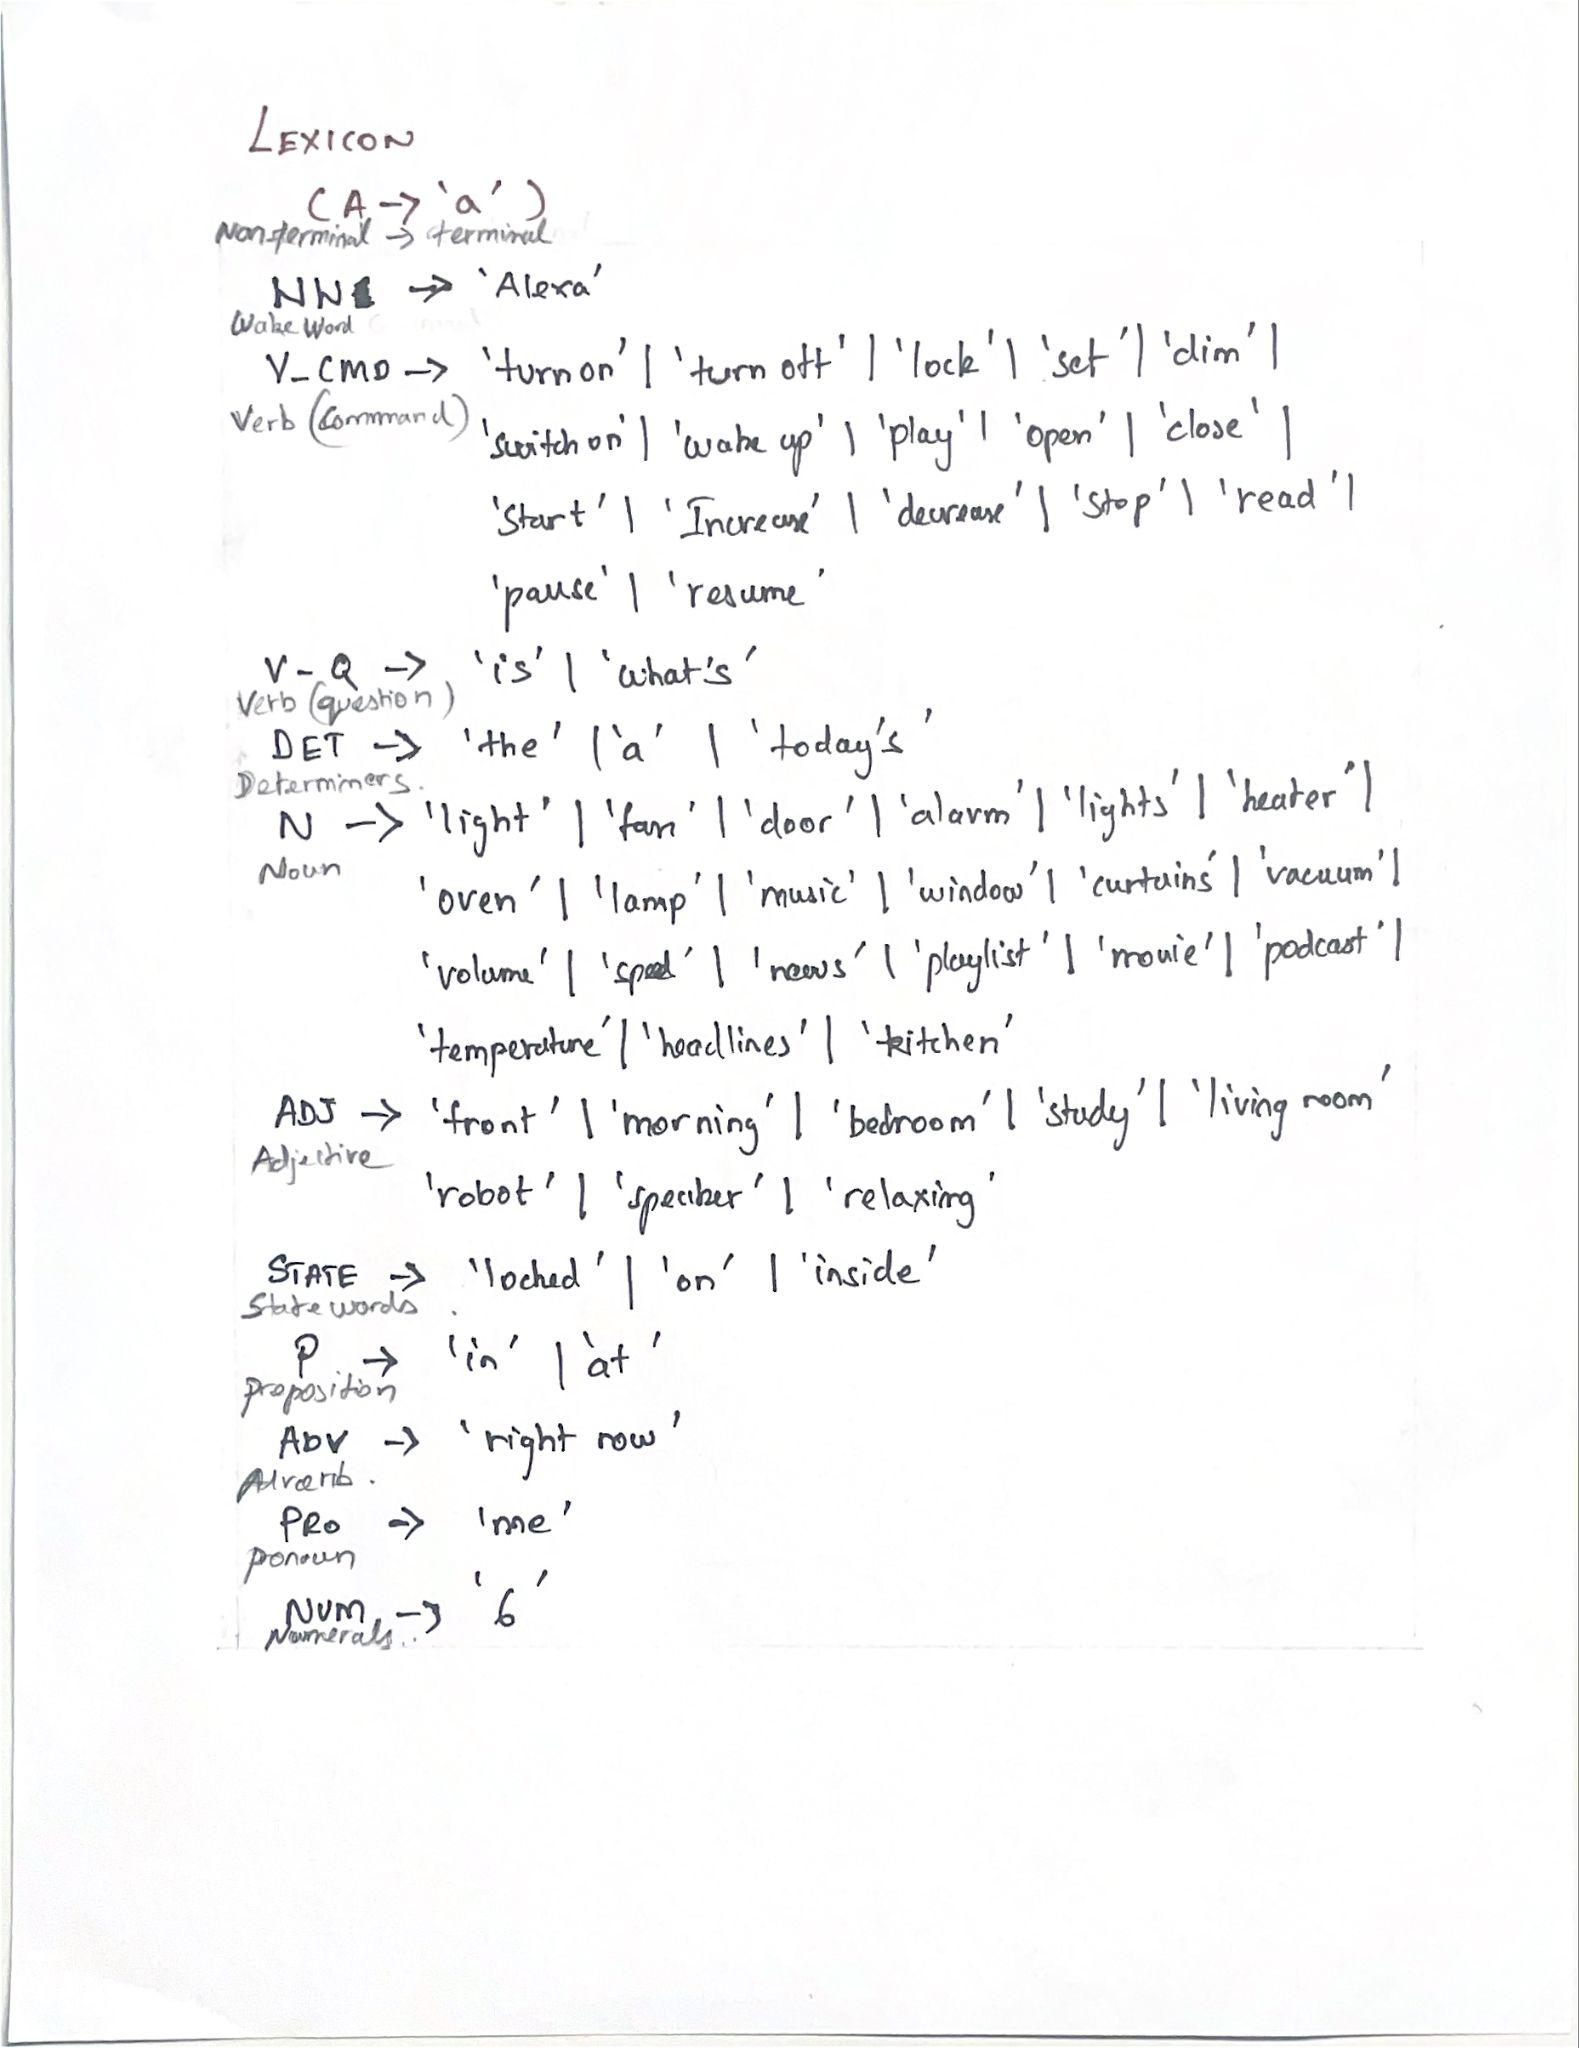 LEXICON
(A → 'a')
Nonterminal → terminal
NN → 'Alexa'
Wake Word
V_CMD → 'turn on' | 'turn off' | 'lock' | 'set' | 'dim' |
Verb (Command)
'switch on' | 'wake up' | 'play' | 'open' | 'close' |
'Start' | 'Increase' | 'decrease' | 'Stop' | 'read' |
'pause' | 'resume'
V-Q → 'is' | 'what's'
Verb (question)
DET → 'the' | 'a' | 'today's'
Determiners.
N → 'light' | 'fan' | 'door' | 'alarm' | 'lights' | 'heater' |
Noun
'oven' | 'lamp' | 'music' | 'window' | 'curtains' | 'vacuum' |
'volume' | 'speed' | 'news' | 'playlist' | 'movie' | 'podcast' |
'temperature' | 'headlines' | 'kitchen'
ADJ → 'front' | 'morning' | 'bedroom' | 'study' | 'living room'
Adjective
'robot' | 'speaker' | 'relaxing'
STATE → 'locked' | 'on' | 'inside'
State words.
P → 'in' | 'at'
Preposition
ADV → 'right now'
Adverb.
PRO → 'me'
Pronoun
NUM → '6'
Numerals..